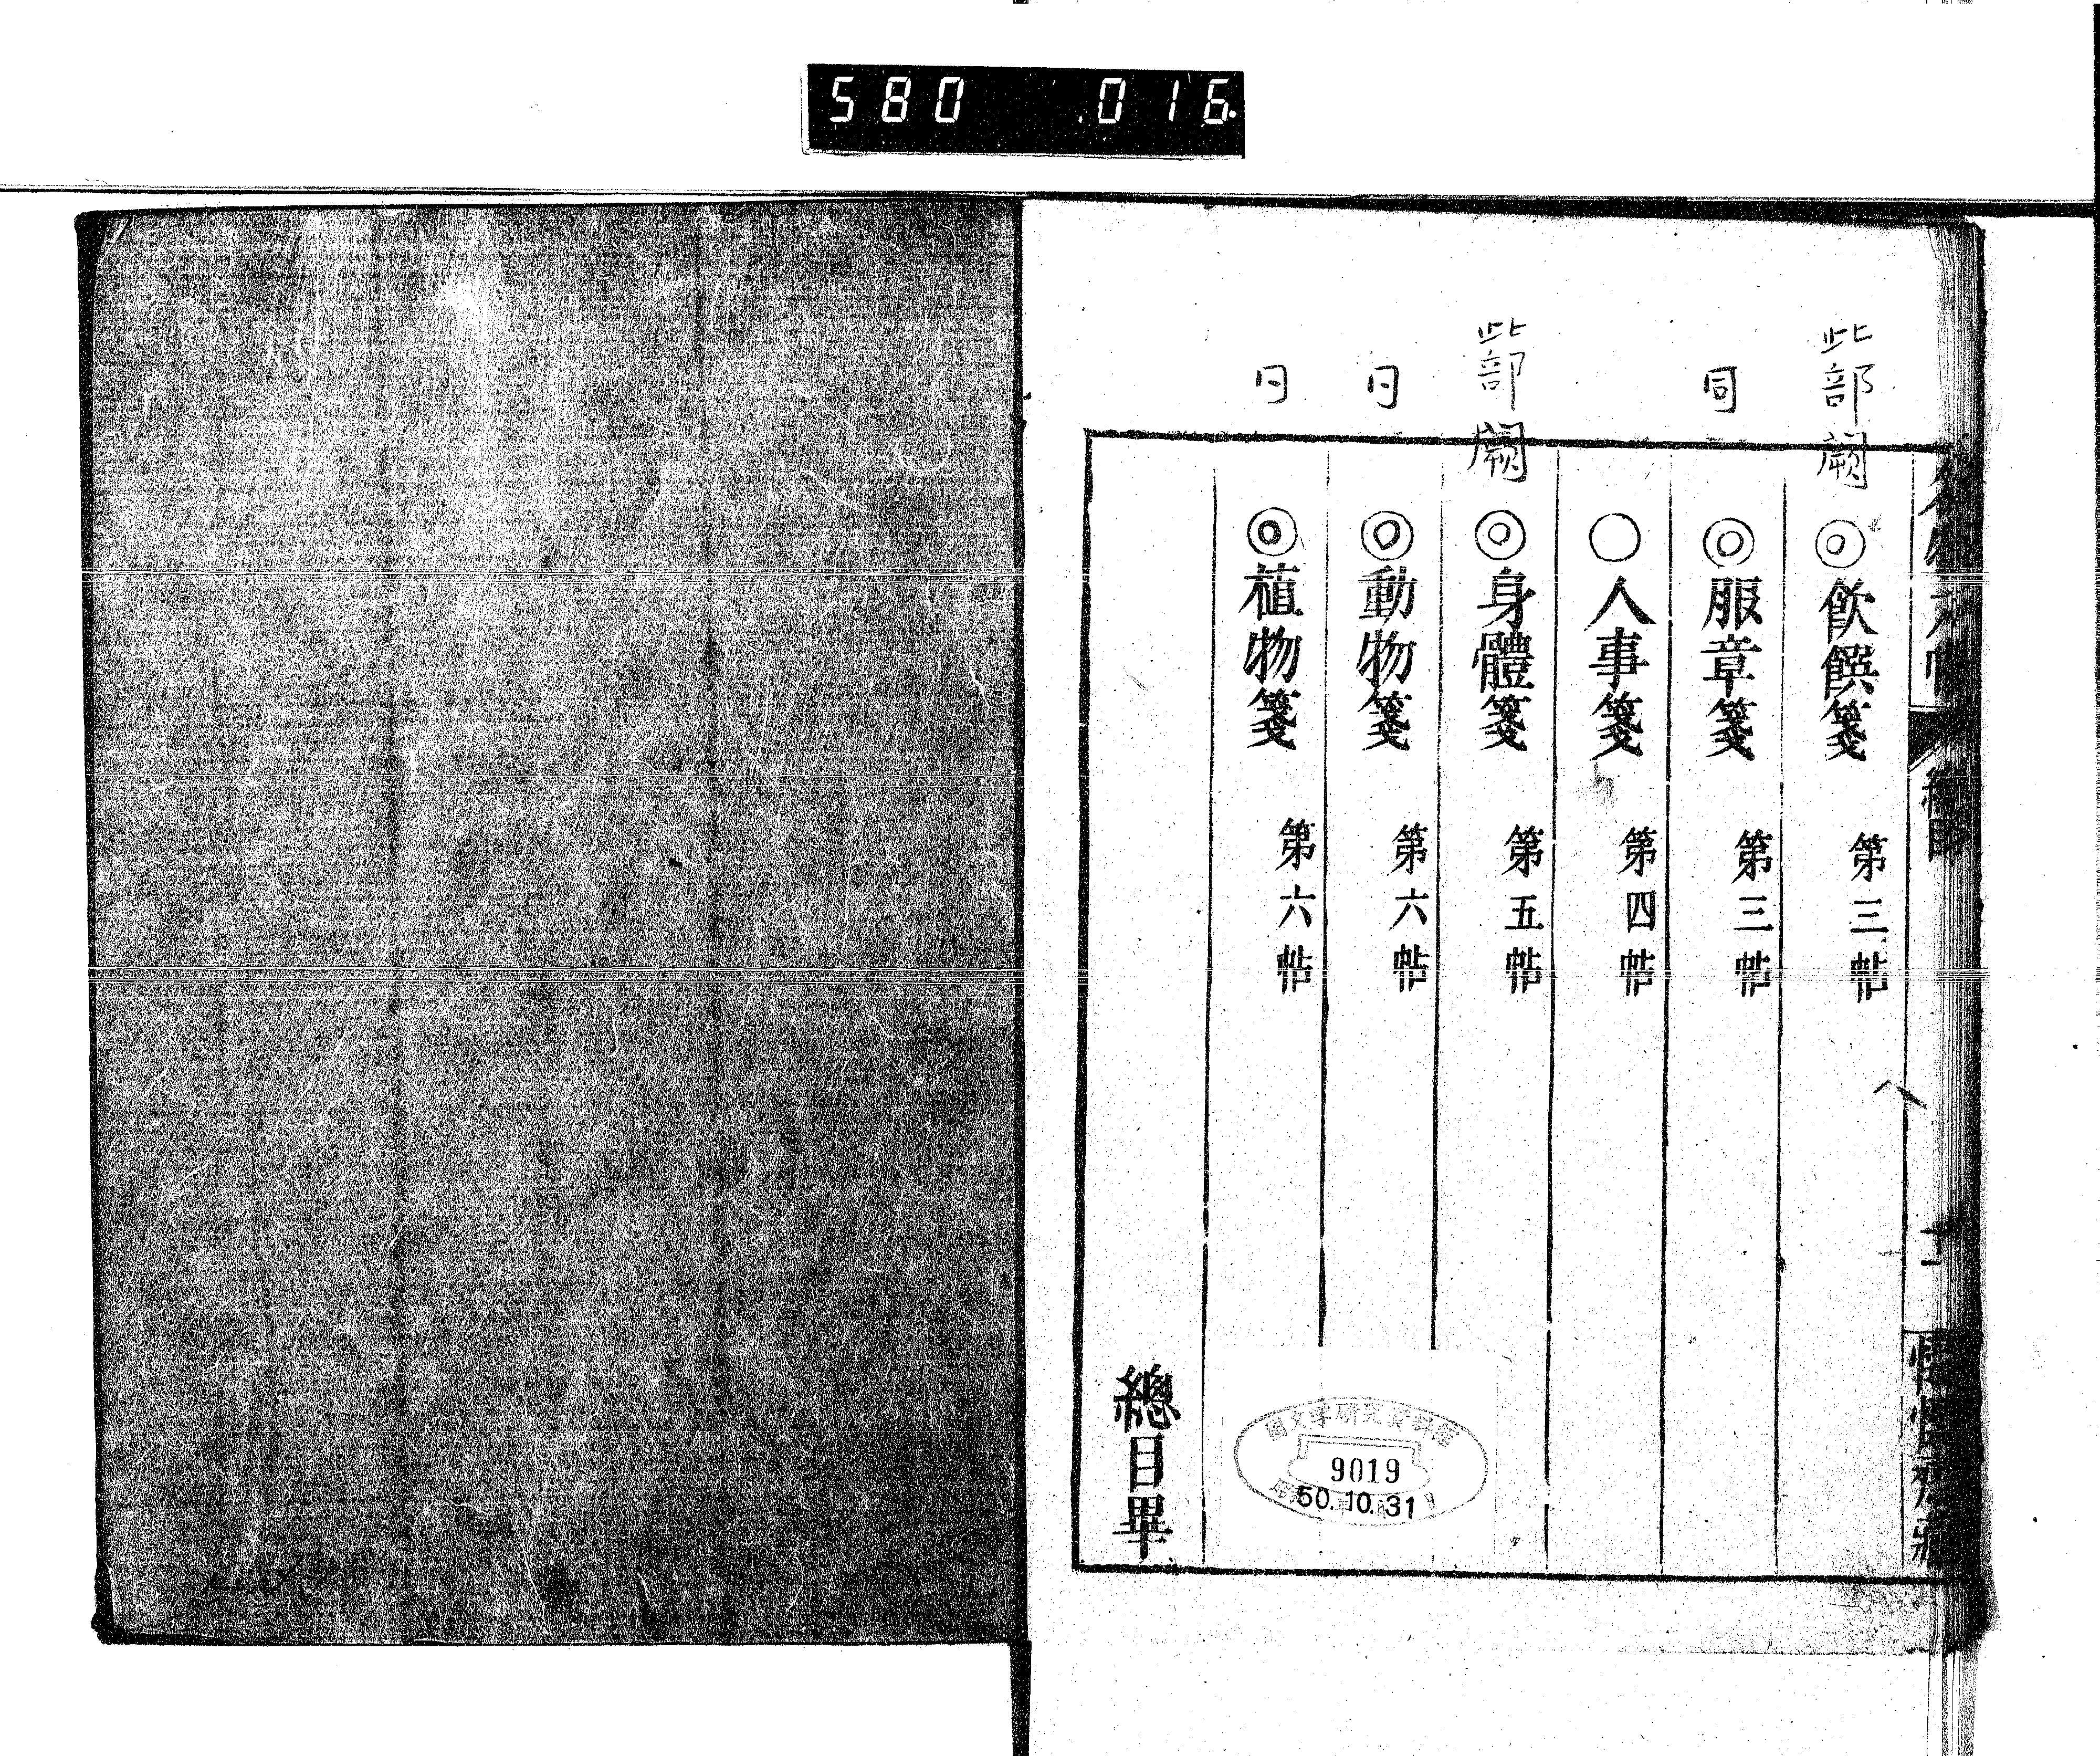 580 .016.
此部闕
◎飲饌箋 第三帖
同
◎服章箋 第三帖
○人事箋 第四帖
此部闕
◎身體箋 第五帖
冃
◎動物箋 第六帖
冃
◎植物箋 第六帖
總目畢
國文学研究資料館
9019
50.10.31